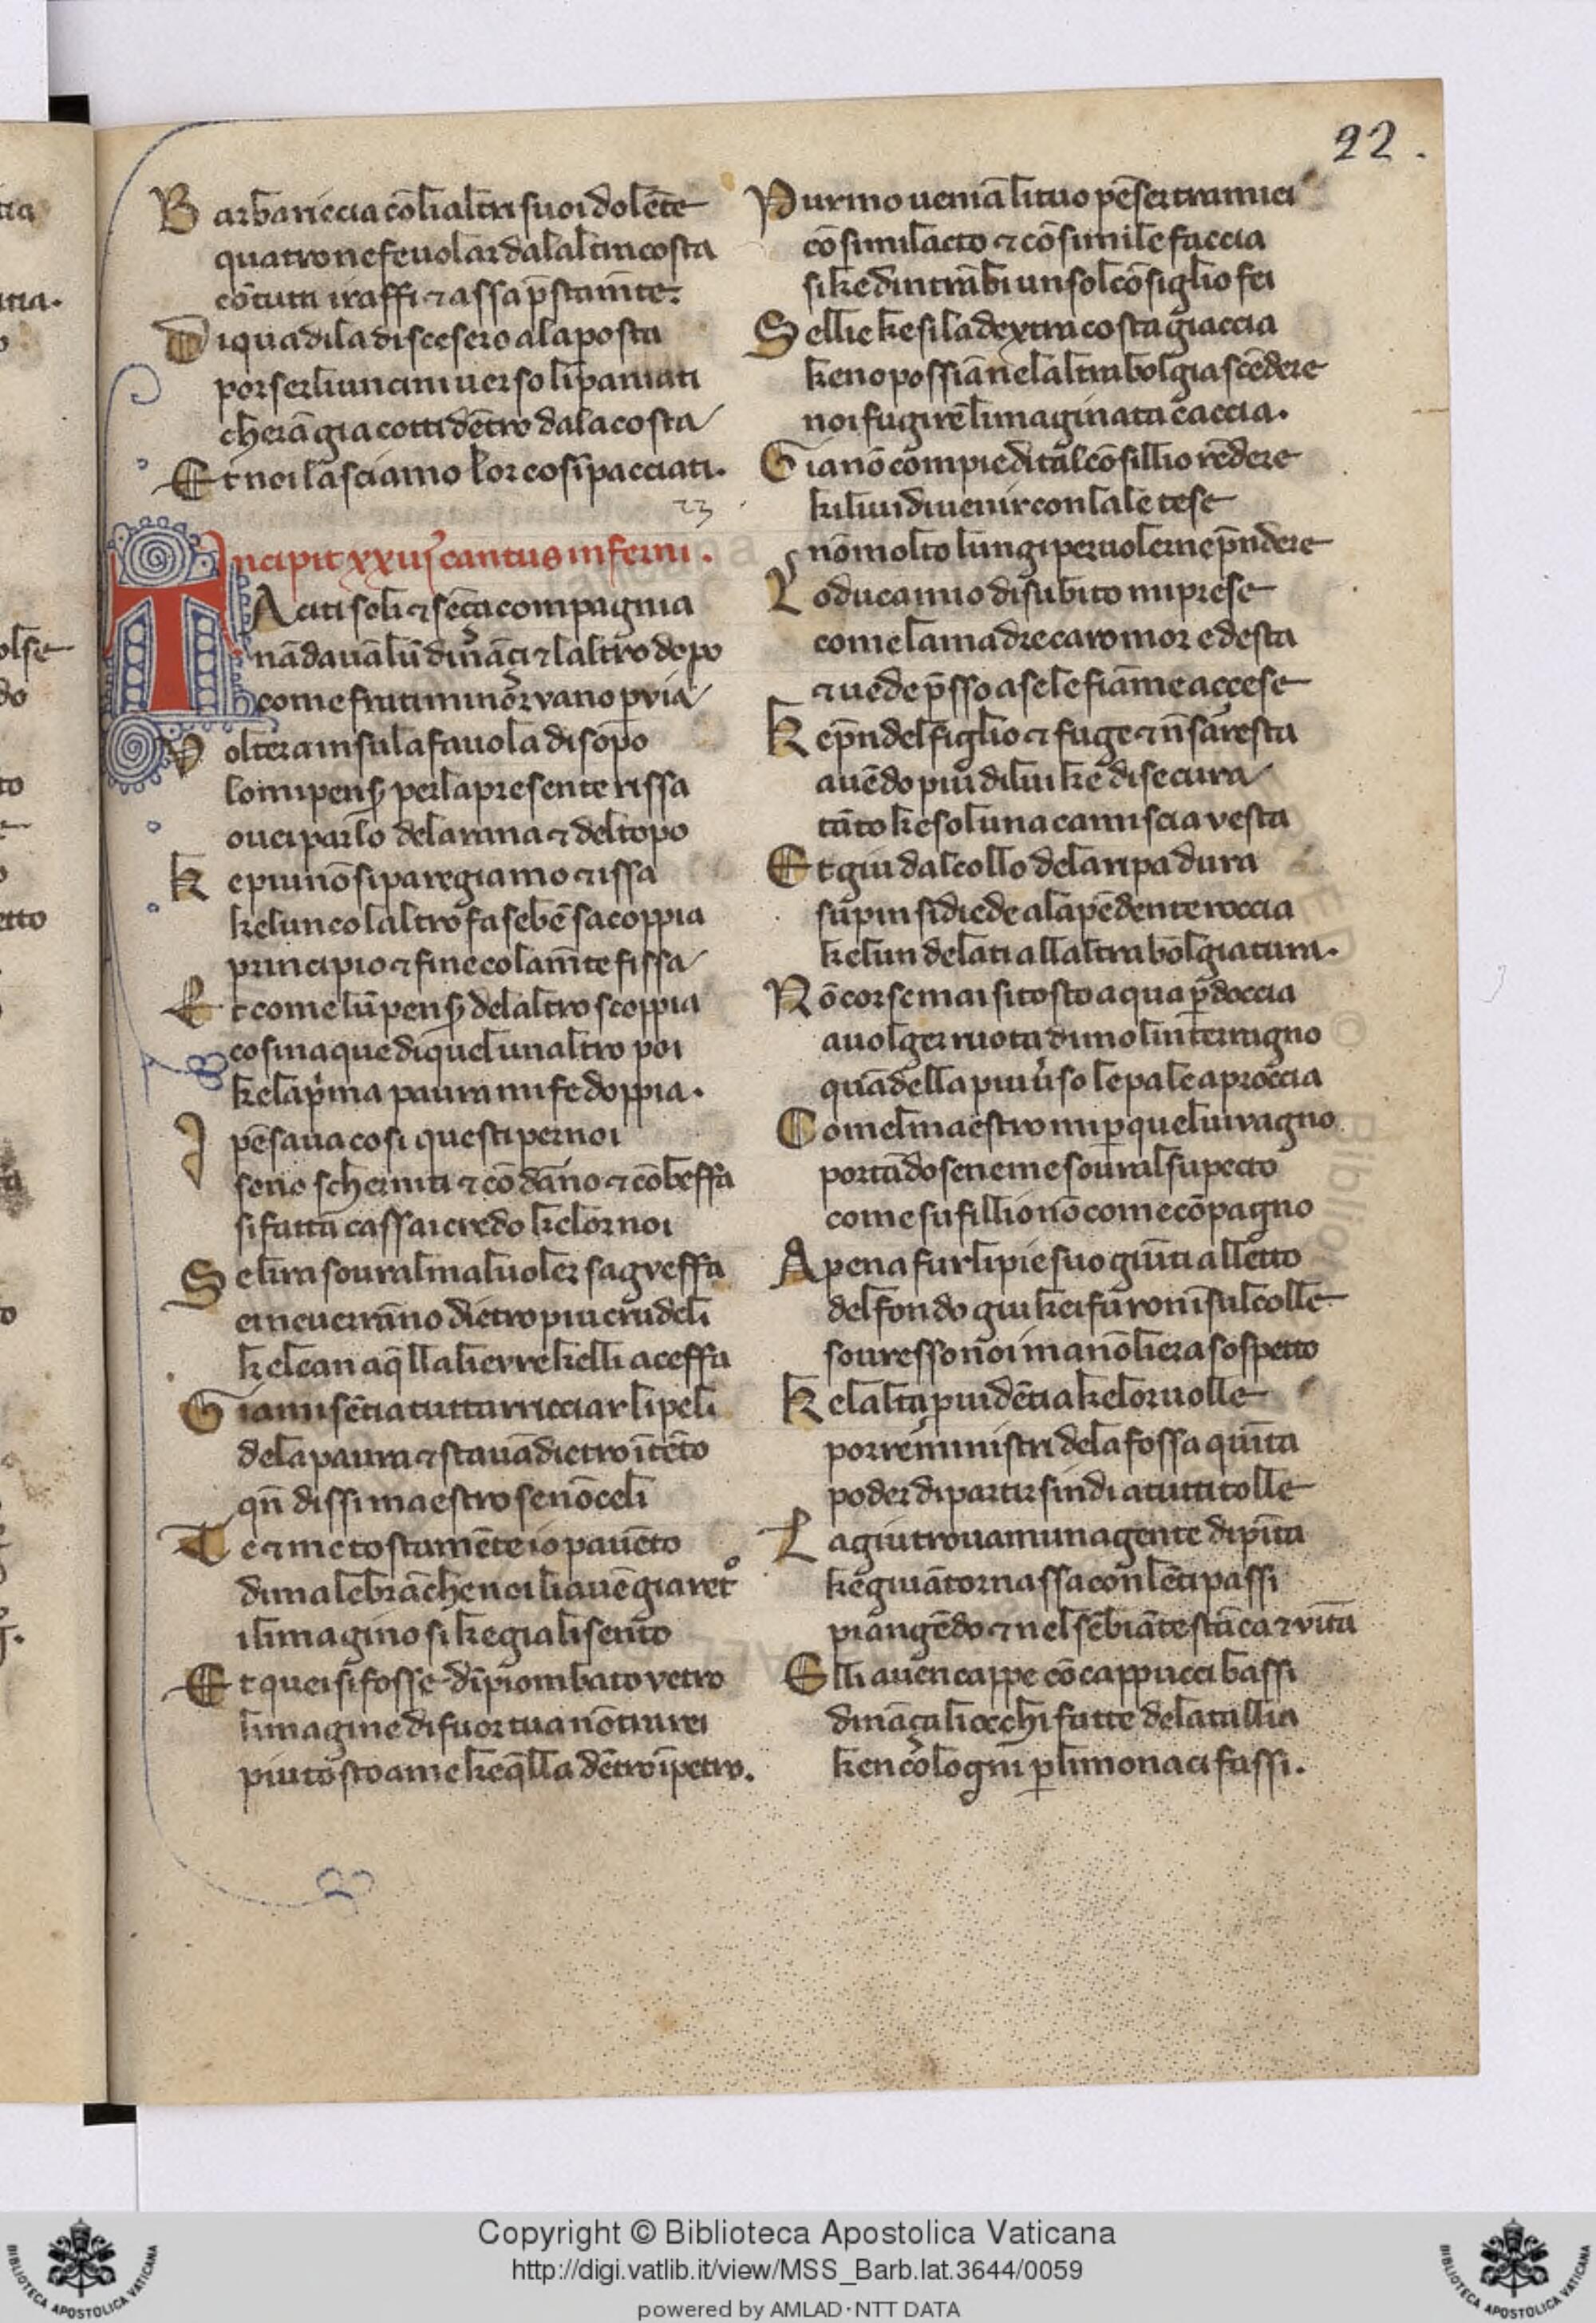 22.
Barbariccia cō li altri suoi dolēte
quatro ne fe volar dal altra costa
cō tuti i raffi ⁊ assa p̄stam̄te.
Di qua di la discesero a la posta
porser li uncini verso l īpaniati
ch erā gia cotti dētro da la costa
Et noi lasciamo lor cosi īpacciati.
23
Incipit xxiij cantus inferni.
TAciti soli ⁊ sēça compagnia
n ādavā l ū dināçi ⁊ l altro dopo
come frati minor vano p via
Volter'a in su la favola d isopo
lo mi pens̄ per la presente rissa
ov ei parlo de la rana ⁊ del topo
Ke piu nō si paregia mo ⁊ issa
ke l un co l altro fa se bē s acoppia
principio ⁊ fine co la m̄te fissa
Et come l ū pens̄ de l altro scoppia
cosi naque di quel un altro poi
ke la p'ma paura mi fe doppia.
I pēsava cosi questi per noi
sono scherniti ⁊ cō dāno ⁊ cō beffa
si fatta c assai credo ke lor noi
Se l ira sovra l mal voler s agveffa
ei ne verrāno dietro piu crudeli
ke l can a q̄lla lievre k elli aceffa
Gia mi sētia tutt arricciar li peli
de la paura ⁊ stava dietro ītēto
qn̄ dissi maestro se nō celi
Te ⁊ me tostamēte io pavēto
di malebrāche noi li avē gia retº
i l imagino si ke gia li sento
Et quei s i fosse d īpiombato vetro
l imagine di fuor tua nō trarei
piu tosto a me ke q̄lla dētro īpetro.
Pur mo veniā li tuo pēser tra miei
cō simil acto ⁊ cō simile faccia
si ke d intrābi un sol cōsiglio fei
S elli e ke si la dextra costa giaccia
ke no possiā nel altra bolgia scēdere
noi fugirē l imaginata caccia.
Gia nō compie di tal cōsillio rēdere
k i li vidi venir con l ale tese
nō molto lungi per volerne p̄ndere
Lo duca mio di subito mi prese
come la madre c a romor e desta
⁊ vede p̄sso a se le fiāme accese
Ke p̄nde l figlio ⁊ fuge ⁊ n̄ s aresta
avēdo piu di lui ke di se cura
tāto ke sol una camiscia vesta
Et giu dal collo de la ripa dura
supin si diede a la pēdente roccia
ke l un de lati all altra bolgia tura.
Nō corse mai si tosto aqua p doccia
a volger ruota di molin terragno
quād ella piu v'so le pale aproccia
Come l maestro mi p quel vivagno
portādosene me sovra l su pecto
come su fillio nō come cōpagno
A pena fur li pie suo giūti al letto
del fondo giu k ei furon ī sul colle
sovresso noi ma nō li era sospetto
Ke l alta p̄videtia ke lor volle
porre ministri de la fossa quīta
poder di partirs indi a tutti tolle
La giu trovamo una gente dipīta
ke giva ītorn assa con lēti passi
piangēdo ⁊ nel sēbiāte stāca ⁊ vīta
Elli aven cappe cō cappucci bassi
dināçi a li occhi fatte de la tallia
ke n cologni p li monaci fassi.
Copyright © Biblioteca Apostolica Vaticana
http://digi.vatlib.it/view/MSS_Barb.lat.3644/0059
powered by AMLAD·NTT DATA